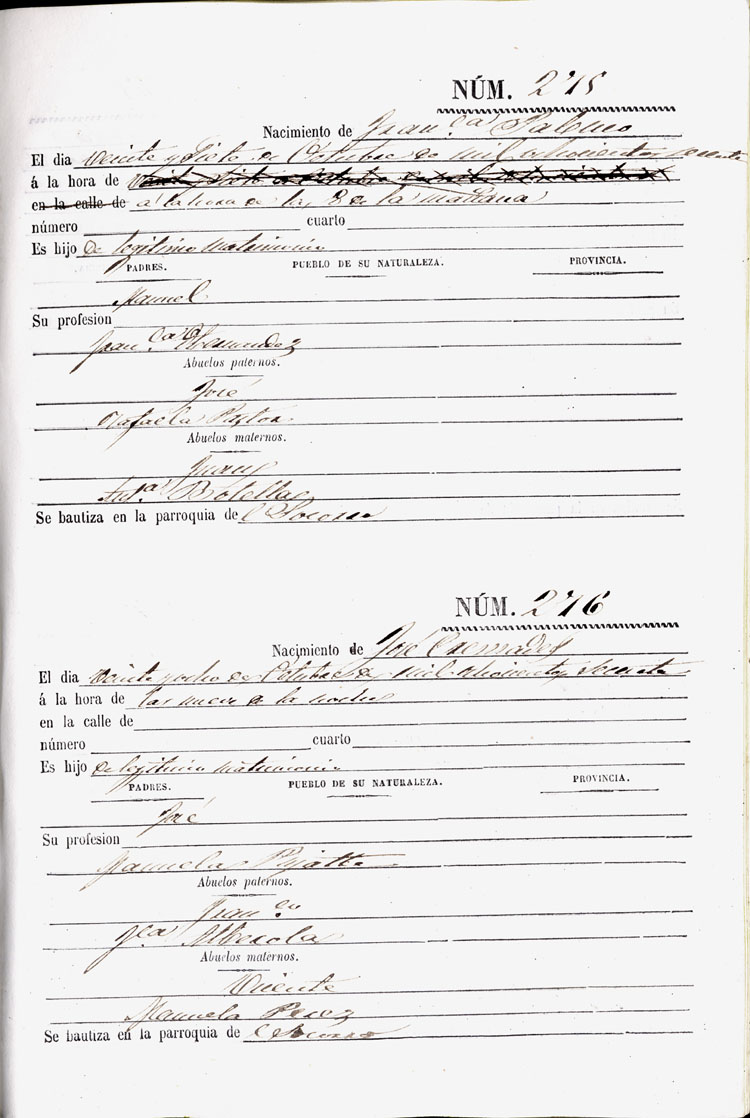 NÚM. 275
Nacimiento de Fran.ca Palomo
El dia veinte y siete de Octubre de mil ochocientos sesenta
á la hora de
en la calle de a la hora de las 8 de la mañana
número cuarto
Es hijo de legitimo matrimonio
PADRES. PUEBLO DE SU NATURALEZA. PROVINCIA.
Manuel
Su profesion
Fran.ca Hernandez
Abuelos paternos.
José
Rafaela Pastor
Abuelos maternos.
Juan
Ant.a Botella
Se bautiza en la parroquia de
NÚM. 276
Nacimiento de José Cremades
El dia veinte y ocho de Octubre de mil ochocientos sesenta
á la hora de las nueve de la noche
en la calle de
número cuarto
Es hijo de legitimo matrimonio
PADRES. PUEBLO DE SU NATURALEZA. PROVINCIA.
José
Su profesion
Manuela
Abuelos paternos.
Fran.co
Alberola
Abuelos maternos.
Vicente
Manuela Perez
Se bautiza en la parroquia de